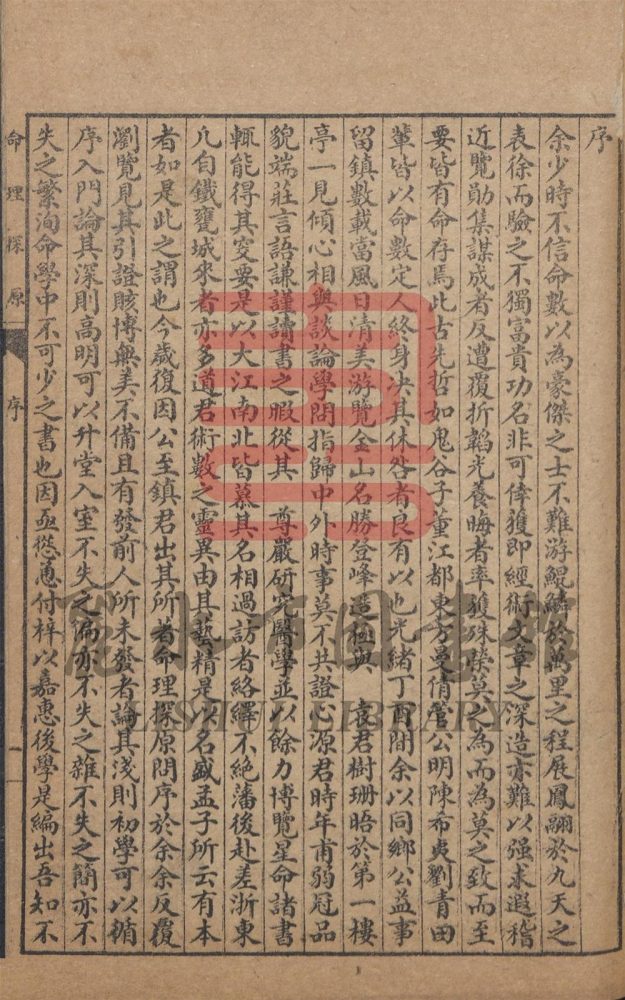 序
余少時不信命數以為豪傑之士不難游鯤鱗於萬里之程展鳳翮於九天之
表徐而驗之不獨富貴功名非可倖獲即經術文章之深造亦難以强求遐稽
近覽勛集謀成者反遭覆折韜光養晦者率獲殊榮莫之為而為莫之致而至
要皆有命存焉此古先哲如鬼谷子董江都東方曼倩管公明陳希夷劉青田
輩皆以命數定人終身决其休咎者良有以也光緒丁酉間余以同鄉公益事
留鎮數載當風日清美游覽金山名勝登峰造極與 袁君樹珊晤於第一樓
亭一見傾心相與談論學問指歸中外時事莫不共證心源君時年甫弱冠品
貌端莊言語謙謹讀書之暇從其 尊嚴研究醫學並以餘力博覽星命諸書
輒能得其窔要是以大江南北皆慕其名相過訪者絡繹不絕藩後赴差浙東
凡自鐵甕城來者亦多道君術數之靈異由其藝精是以名盛孟子所云有本
者如是此之謂也今歲復因公至鎮君出其所著命理探原問序於余余反覆
瀏覽見其引證賅博無美不備且有發前人所未發者論其淺則初學可以循
序入門論其深則高明可以升堂入室不失之偏亦不失之雜不失之簡亦不
失之繁洵命學中不可少之書也因亟慫恿付梓以嘉惠後學是編出吾知不
命理探原 序 一
LISHUI LIBRARY